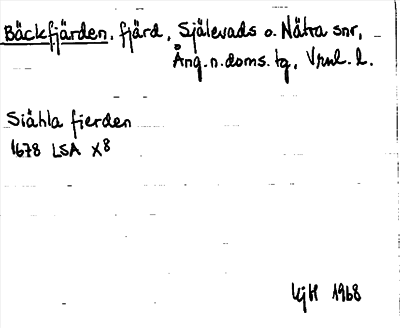 Bäckfjärden, fjärd, Själevads o. Nätra snr,
Ång.n.doms.tg, Vrnl. l.
Siähla fierden
1678 LSA X8
1968